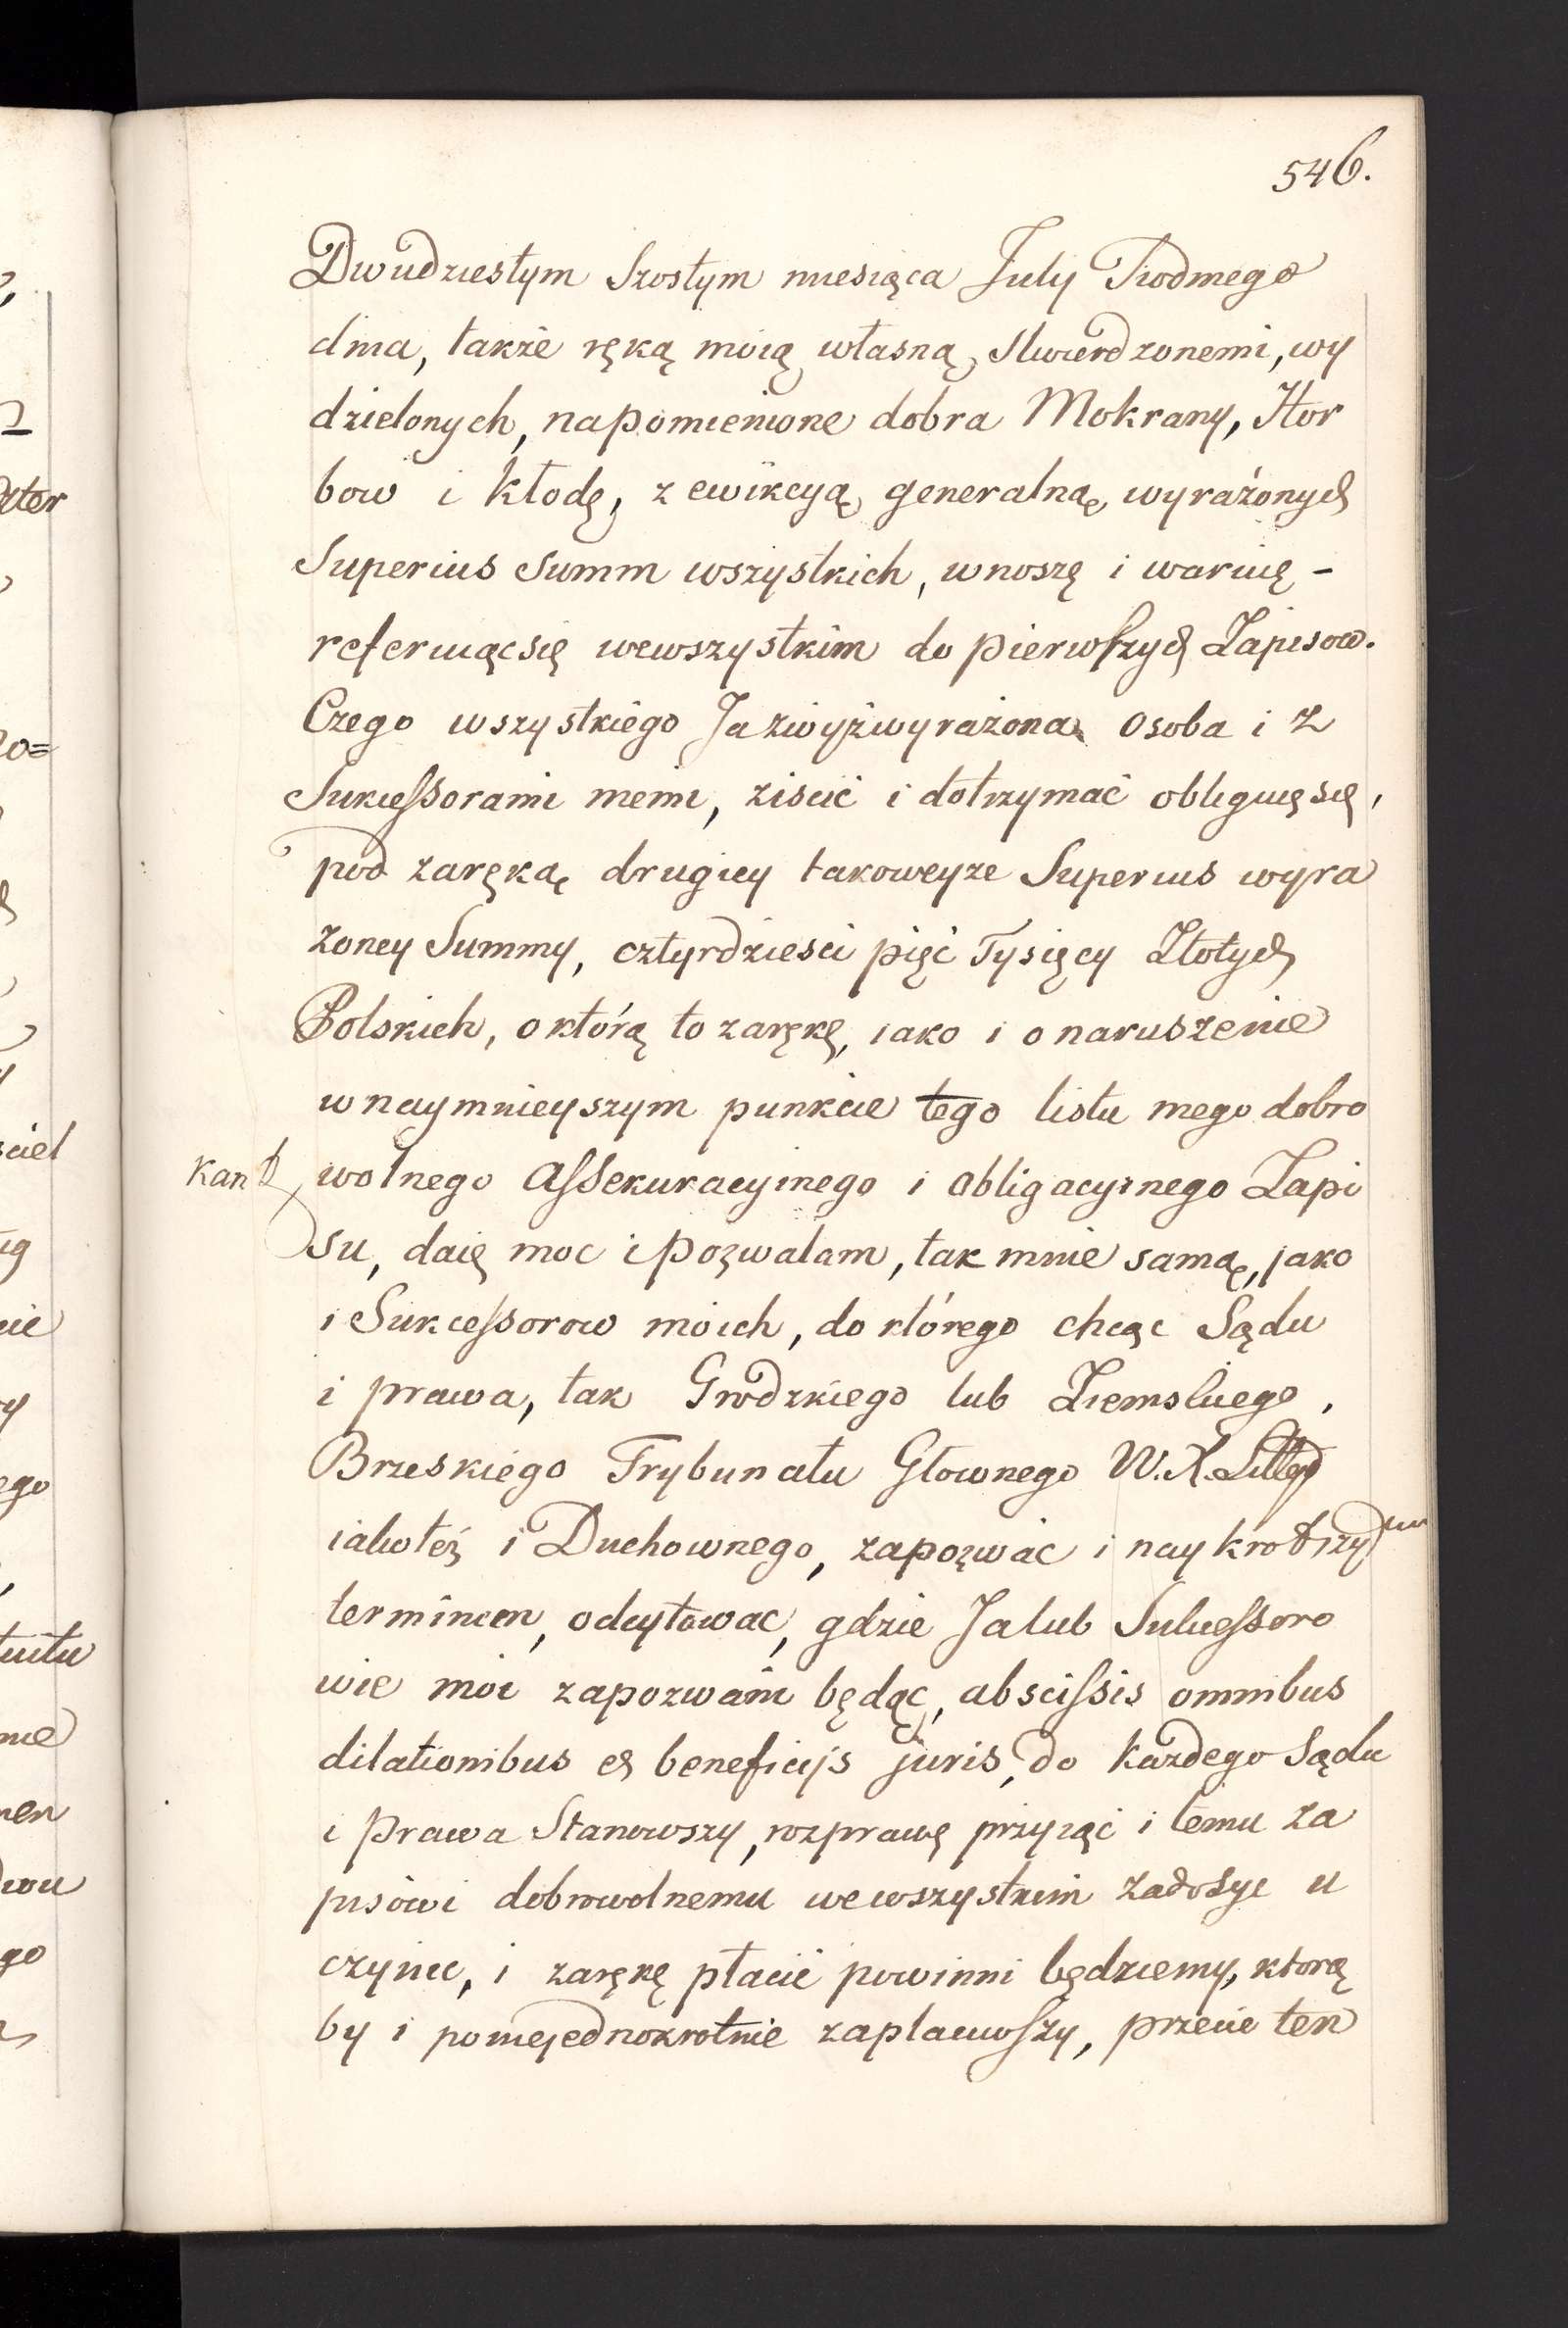 546.
Dwudziestym Szostym miesiąca July Siodmego
dnia, także ręką moią własną, stwierdzonemi, wy
dzielonych, napomienione dobra Mokrany, Hor
bow i Kłodę, z ewikcyą generalną, wyrażonych
Superius Summ wszystkich, wnoszę i waruię -
referuiącsię wewszystkim do pierwszych Zapisow.
Czego wszystkiego Ja zwyżwyrażona Osoba i z
Sukcessorami memi, ziscić i dotrzymać obliguięsię,
pod zaręką, drugiey takoweyze Superius wyra
zoney Summy, cztyrdziesci pięć Tysięcy Złotych
Polskich, o którą to zarękę, iako i o naruszenie
w naymnieyszym punkcie tego listu mego dobro
wolnego Assekuracyinego i obligacyinego Zapi
su, daię moc i pozwalam, tak mnie samą, jako
i Sukcessorow moich, do którego chcąc Sądu
i prawa, tak Grodzkiego lub Ziemskiego,
Brzeskiego Trybunatu Głownego W. X. Litt
iakoteż i Duchownego, zapozwać i naykrotszym
terminem, odcytować, gdzie Ja lub Sukcessoro
wie moi zapozwani będąc, abscissis omnibus
dilationibus et beneficijs juris, do każdego Sądu
i Prawa Stanowszy, rozprawę przyiąć i temu za
pisowi dobrowolnemu wewszystkim zadosyc u
czynic, i zarękę płacić powinni będziemy, ktorą
by i poniejednokrotnie zaplaciwszy, przecie ten